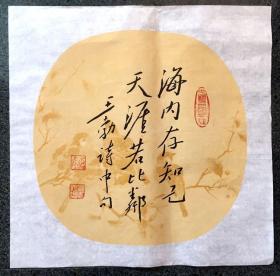 海内存知己
天涯若比鄰
王勃诗中句